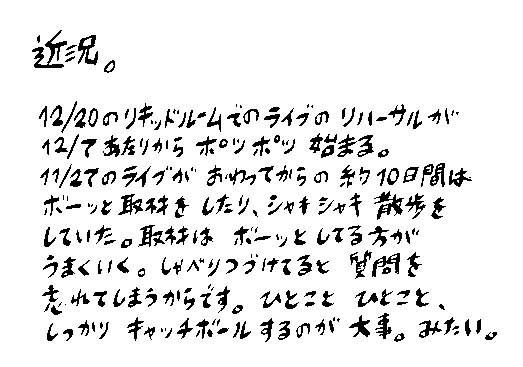 近況。
12/20のリキッドルームでのライブのリハーサルが
12/7あたりから ポツッポツッ 始まる。
11/27のライブが おわってからの 約10日間は
ボーッと取材をしたり、シャキシャキ 散歩を
していた。取材は ボーッとしてる方が
うまくいく。しゃべりつづけてると 質問を
忘れてしまうからです。ひとこと ひとこと、
しっかり キャッチボールするのが 大事。みたい。